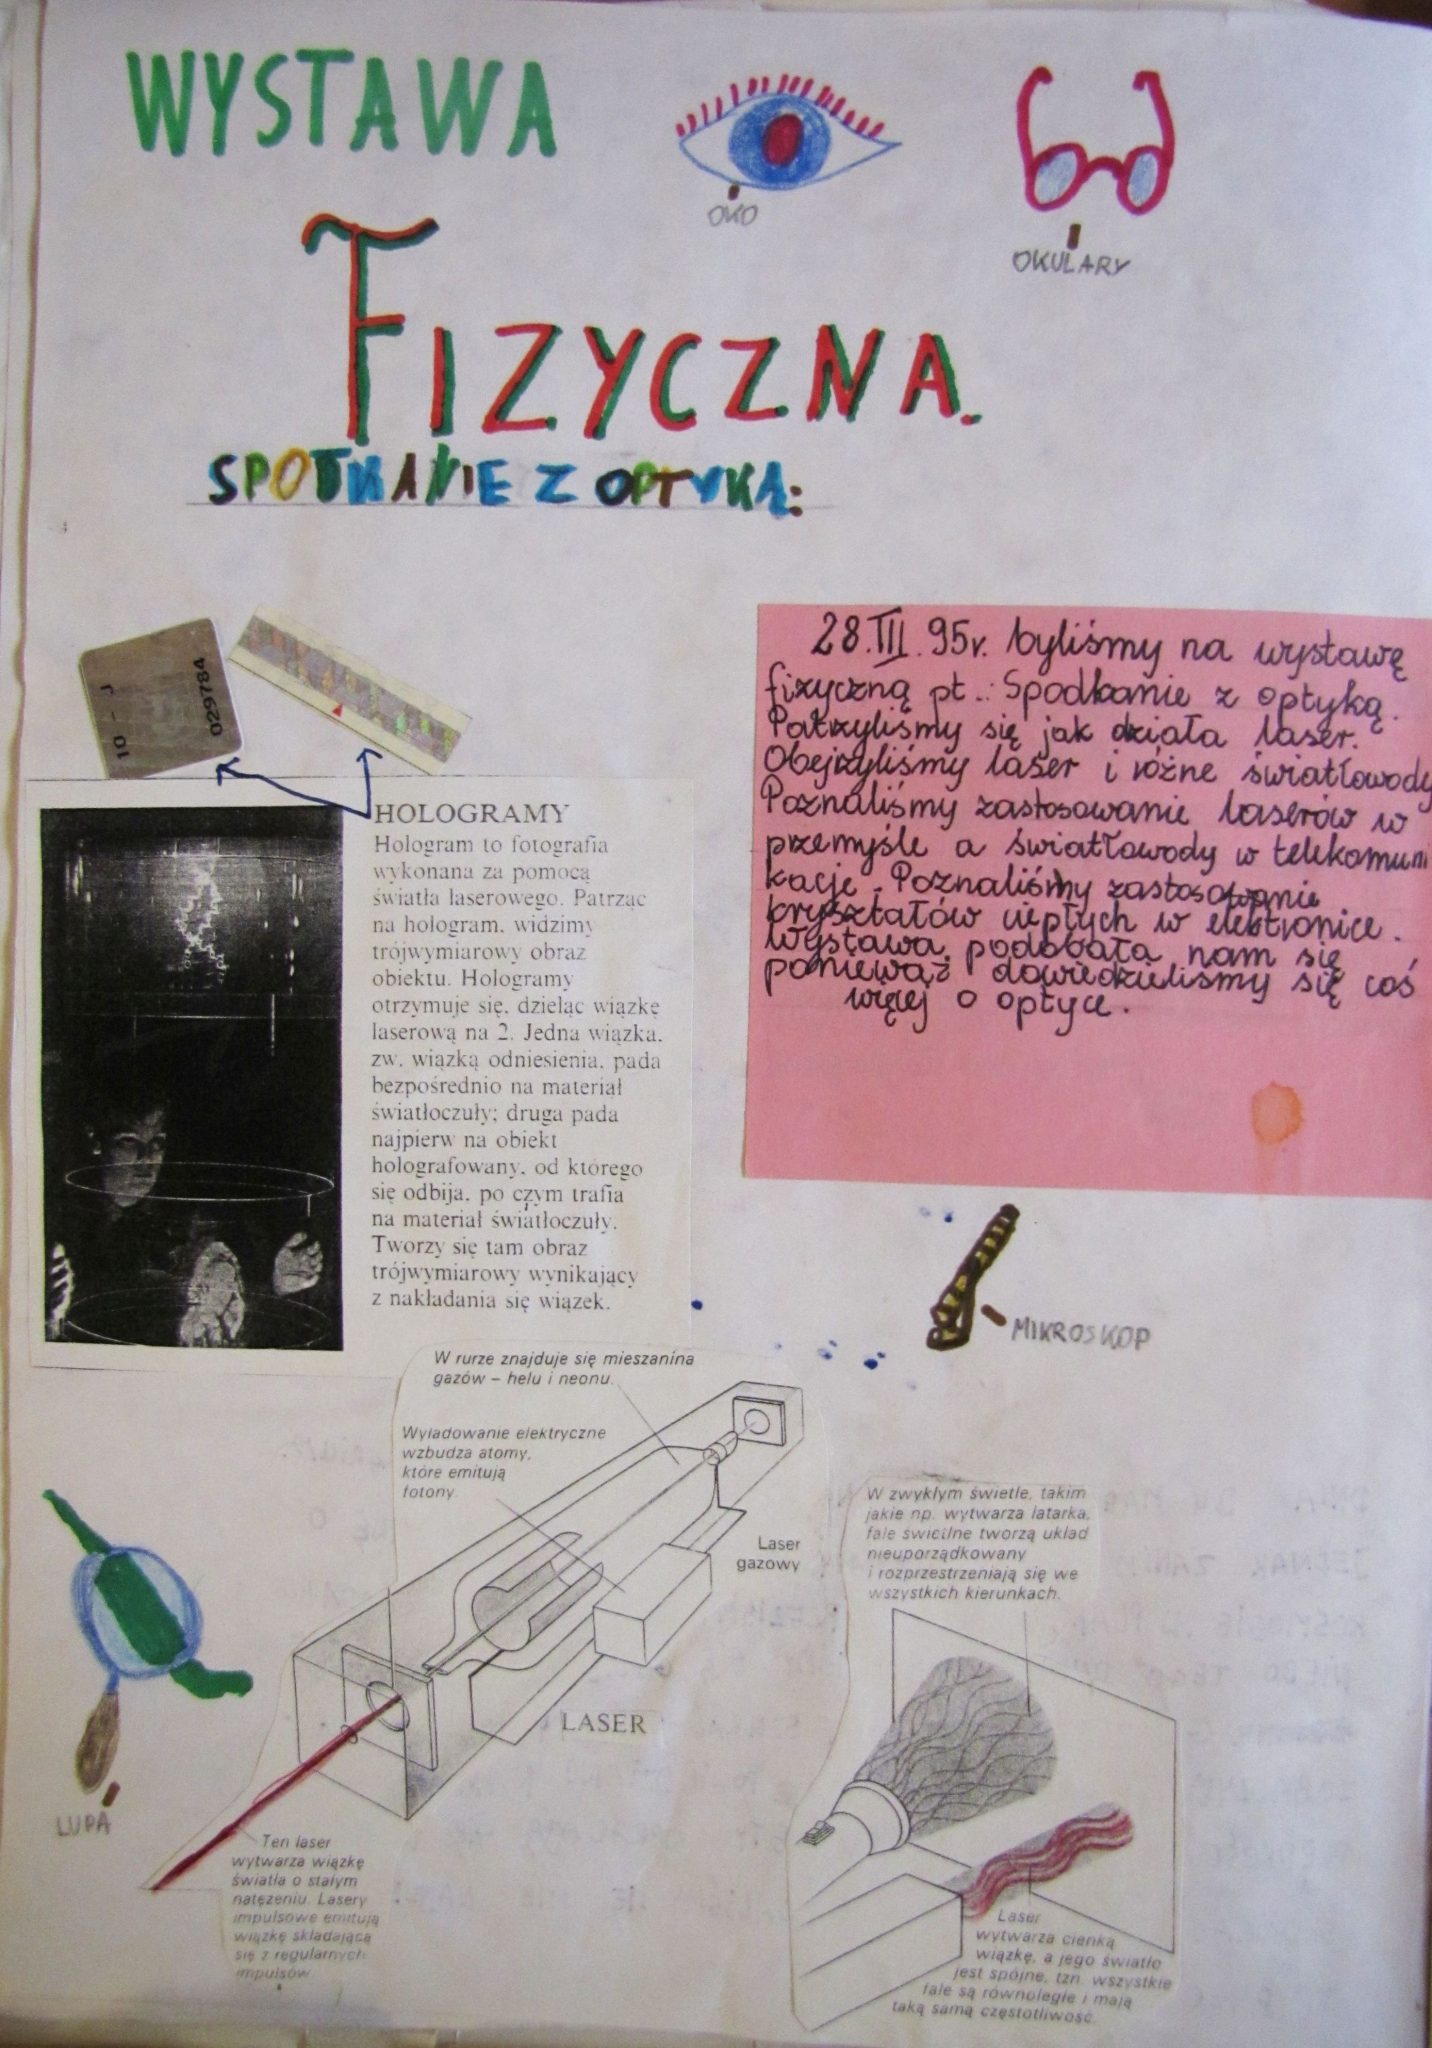 WYSTAWA
OKO
OKULARY
FIZYCZNA.
SPOTKANIE Z OPTYKĄ:
10 - J
029784
28.III.95r. byliśmy na wystawę
fizyczną pt.: Spodkanie z optyką.
Patrzyliśmy się jak działa laser.
Obejrzyliśmy laser i różne światłowody
Poznaliśmy zastosowanie laserów w
przemyśle a światłowody w telekomuni
kacje. Poznaliśmy zastosowanie
kryształów ciepłych w elektronice.
Wystawa podobała nam się
ponieważ dowiedzieliśmy się coś
więcej o optyce.
HOLOGRAMY
Hologram to fotografia
wykonana za pomocą
światła laserowego. Patrząc
na hologram, widzimy
trójwymiarowy obraz
obiektu. Hologramy
otrzymuje się, dzieląc wiązkę
laserową na 2. Jedna wiązka,
zw. wiązką odniesienia, pada
bezpośrednio na materiał
światłoczuły; druga pada
najpierw na obiekt
holografowany, od którego
się odbija, po czym trafia
na materiał światłoczuły.
Tworzy się tam obraz
trójwymiarowy wynikający
z nakładania się wiązek.
MIKROSKOP
W rurze znajduje się mieszanina
gazów – helu i neonu.
Wyładowanie elektryczne
wzbudza atomy,
które emitują
fotony.
Laser
gazowy
LASER
LUPA
Ten laser
wytwarza wiązkę
światła o stałym
natężeniu. Lasery
impulsowe emitują
wiązkę składającą
się z regularnych
impulsów.
W zwykłym świetle, takim
jakie np. wytwarza latarka,
fale świetlne tworzą układ
nieuporządkowany
i rozprzestrzeniają się we
wszystkich kierunkach.
Laser
wytwarza cienką
wiązkę, a jego światło
jest spójne, tzn. wszystkie
fale są równoległe i mają
taką samą częstotliwość.